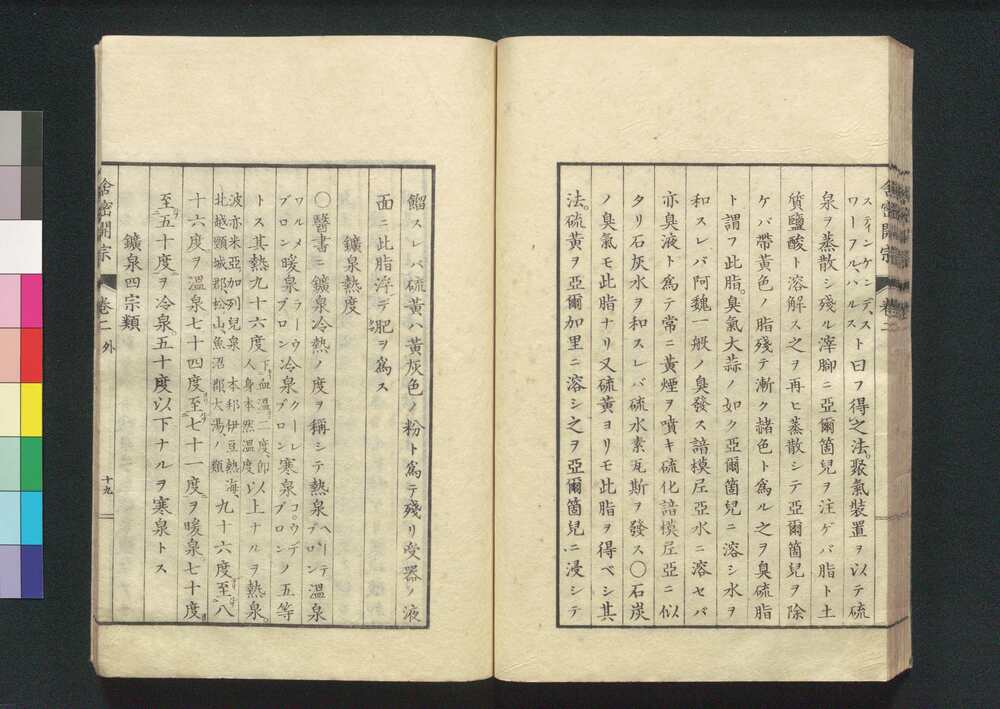 スティンケンデ、スワーフル、ハルスト曰フ得之法。聚氣裝置ヲ以テ硫
泉ヲ蒸散シ殘ル滓脚ニ亞爾箇兒ヲ注ゲバ脂ト土
質鹽酸ト溶解ス之ヲ再ヒ蒸散シテ亞爾箇兒ヲ除
ケバ帶黃色ノ脂殘テ漸ク赭色ト爲ル之ヲ臭硫脂
ト謂フ此脂。臭氣大蒜ノ如ク亞爾箇兒ニ溶シ水ヲ
和スレバ阿魏一般ノ臭發ス諳模尼亞水ニ溶セバ
亦臭液ト爲テ常ニ黃煙ヲ噴キ硫化諳模尼亞ニ似
タリ石灰水ヲ和スレバ硫水素瓦斯ヲ發ス〇石炭
ノ臭氣モ此脂ナリ又硫黃ヨリモ此脂ヲ得ベシ其
法。硫黃ヲ亞爾加里ニ溶シ之ヲ亞爾箇兒ニ浸シテ
舍密開宗
卷二
餾スレバ硫黃ハ黃灰色ノ粉ト爲テ殘リ受器ノ液
面ニ此脂浮デ肥ヲ爲ス
鑛泉熱度
〇醫書ニ鑛泉冷熱ノ度ヲ稱シテ熱泉ヘーテブロン溫泉
ワルメブロン暖泉ラーウブロン冷泉クーレブロン寒泉コウデブロンノ五等
トス其熱九十六度下血溫二度、卽人身本然溫度以上ナルヲ熱泉。
波亦米亞、加列兒泉本邦伊豆熱海、北越頸城郡、松山、魚沼郡大湯ノ類九十六度至八
十六度ヲ溫泉七十四度至七十一度ヲ暖泉七十度
至五十度ヲ冷泉五十度以下ナルヲ寒泉トス
鑛泉四宗類
舍密開宗
卷二外
十九